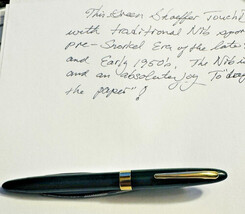 This Green Sheaffer Touchd
with traditional Nib span
pre-Snorkel Era of the late
and Early 1950s. The Nib is
and an absolute joy To "drag
the paper"!